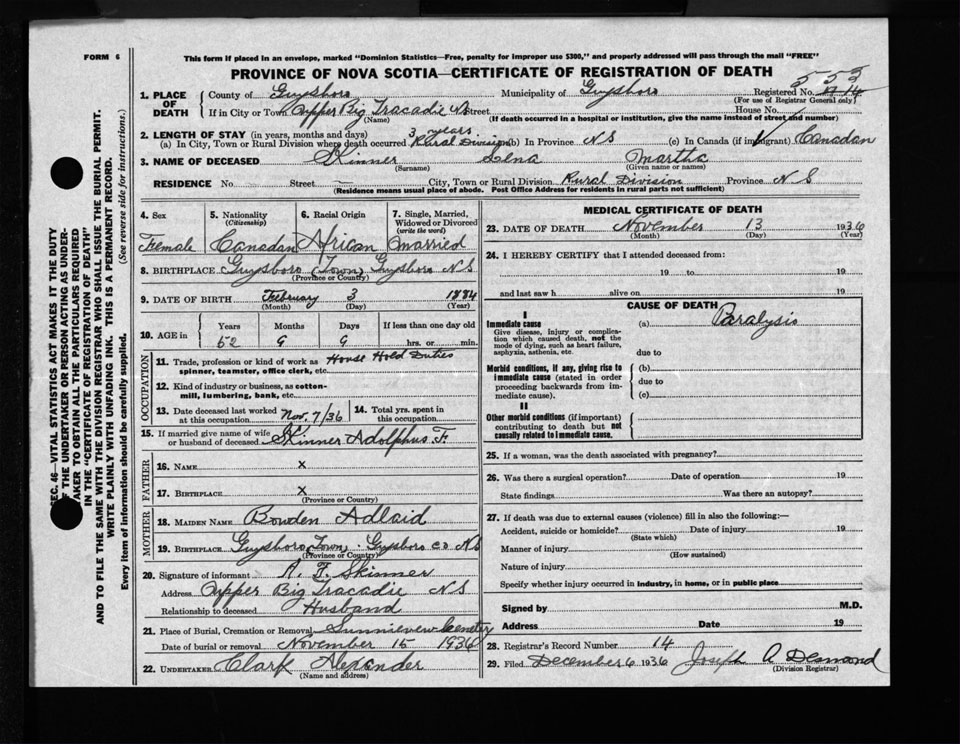 FORM 6
This form if placed in an envelope, marked "Dominion Statistics—Free, penalty for improper use $300," and properly addressed will pass through the mail "FREE"
PROVINCE OF NOVA SCOTIA—CERTIFICATE OF REGISTRATION OF DEATH
553
1. PLACE OF DEATH County of Guysboro Municipality of Guysboro Registered No. 14
(For use of Registrar General only)
If in City or Town Upper Big Tracadie NS Street House No.
(Name) (If death occurred in a hospital or institution, give the name instead of street and number)
2. LENGTH OF STAY (in years, months and days) 3 years
(a) In City, Town or Rural Division where death occurred Rural Division (b) In Province NS (c) In Canada (if immigrant) Canadan
3. NAME OF DECEASED Skinner Lena Martha
(Surname) (Given name or names)
RESIDENCE No. Street City, Town or Rural Division Rural Division Province NS
(Residence means usual place of abode. Post Office Address for residents in rural parts not sufficient)
4. Sex 5. Nationality (Citizenship) 6. Racial Origin 7. Single, Married, Widowed or Divorced (write the word)
Female Canadan African married
8. BIRTHPLACE Guysboro (Town) Guysboro NS
(Province or Country)
9. DATE OF BIRTH February 3 1884
(Month) (Day) (Year)
10. AGE in Years Months Days If less than one day old
52 9 9 hrs. or min.
OCCUPATION
11. Trade, profession or kind of work as House Hold Duties
spinner, teamster, office clerk, etc.
12. Kind of industry or business, as cotton-
mill, lumbering, bank, etc.
13. Date deceased last worked at this occupation Nov. 7/36 14. Total yrs. spent in this occupation
15. If married give name of wife or husband of deceased Skinner Adolphus F.
FATHER
16. NAME x
17. BIRTHPLACE x
(Province or Country)
MOTHER
18. MAIDEN NAME Bowden Adlaid
19. BIRTHPLACE Guysboro Town, Gysboro co NS
(Province or Country)
20. Signature of informant A. F. Skinner
Address Upper Big Tracadie NS
Relationship to deceased Husband
21. Place of Burial, Cremation or Removal Sunnieview Cemetery
Date of burial or removal November 15 1936
22. UNDERTAKER Clark Alexander
(Name and address)
MEDICAL CERTIFICATE OF DEATH
23. DATE OF DEATH November 13 1936
(Month) (Day) (Year)
24. I HEREBY CERTIFY that I attended deceased from:
19 to 19
and last saw h alive on 19
CAUSE OF DEATH
I
Immediate cause (a) Paralysis
Give disease, injury or complica-
tion which caused death, not the
mode of dying, such as heart failure,
asphyxia, asthenia, etc. due to
Morbid conditions, if any, giving rise to (b)
immediate cause (stated in order due to
proceeding backwards from im-
mediate cause). (c)
II
Other morbid conditions (if important)
contributing to death but not
causally related to immediate cause.
25. If a woman, was the death associated with pregnancy?
26. Was there a surgical operation? Date of operation 19
State findings Was there an autopsy?
27. If death was due to external causes (violence) fill in also the following:—
Accident, suicide or homicide? Date of injury 19
(State which)
Manner of injury
(How sustained)
Nature of injury
Specify whether injury occurred in industry, in home, or in public place
Signed by M.D.
Address Date 19
28. Registrar's Record Number 14
29. Filed December 6 1936 Joseph A Desmond
(Division Registrar)
SEC. 46—VITAL STATISTICS ACT MAKES IT THE DUTY
OF THE UNDERTAKER OR PERSON ACTING AS UNDER-
TAKER TO OBTAIN ALL THE PARTICULARS REQUIRED
IN THE "CERTIFICATE OF REGISTRATION OF DEATH"
AND TO FILE THE SAME WITH THE DIVISION REGISTRAR WHO SHALL ISSUE THE BURIAL PERMIT.
WRITE PLAINLY WITH UNFADING INK. THIS IS A PERMANENT RECORD.
Every item of information should be carefully supplied. (See reverse side for instructions.)